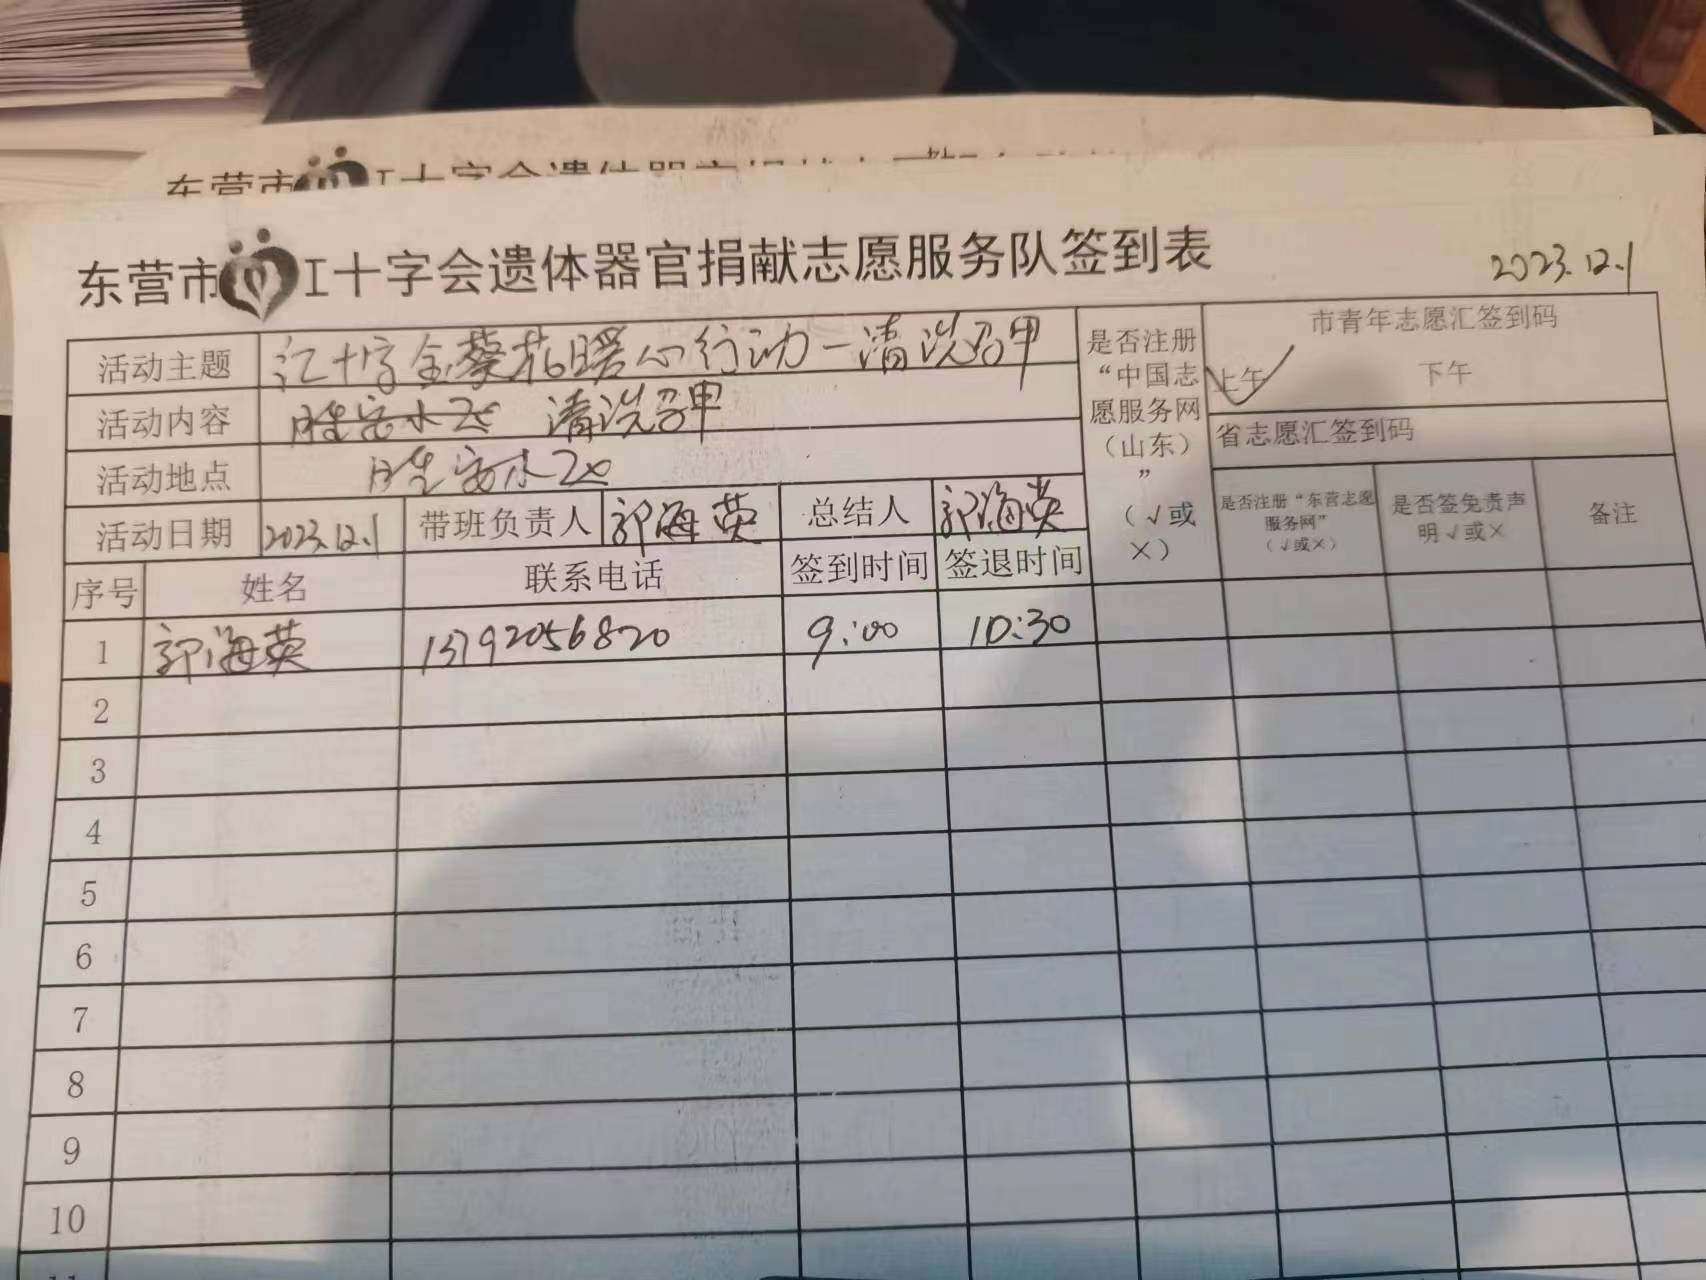 东营市
东营市I十字会遗体器官捐献志愿服务队签到表
2023.12.1
活动主题 红十字会葵花暖心行动-清洗马甲
活动内容 清洗马甲
活动地点
活动日期 2023.12.1 带班负责人 郭海英 总结人 郭海英
是否注册“中国志愿服务网（山东）”（√或×）
市青年志愿汇签到码
上午 √ 下午
省志愿汇签到码
是否注册“东营志愿服务网”（√或×） 是否签免责声明√或× 备注
序号 姓名 联系电话 签到时间 签退时间
1 郭海英 13792056820 9:00 10:30
2
3
4
5
6
7
8
9
10
11